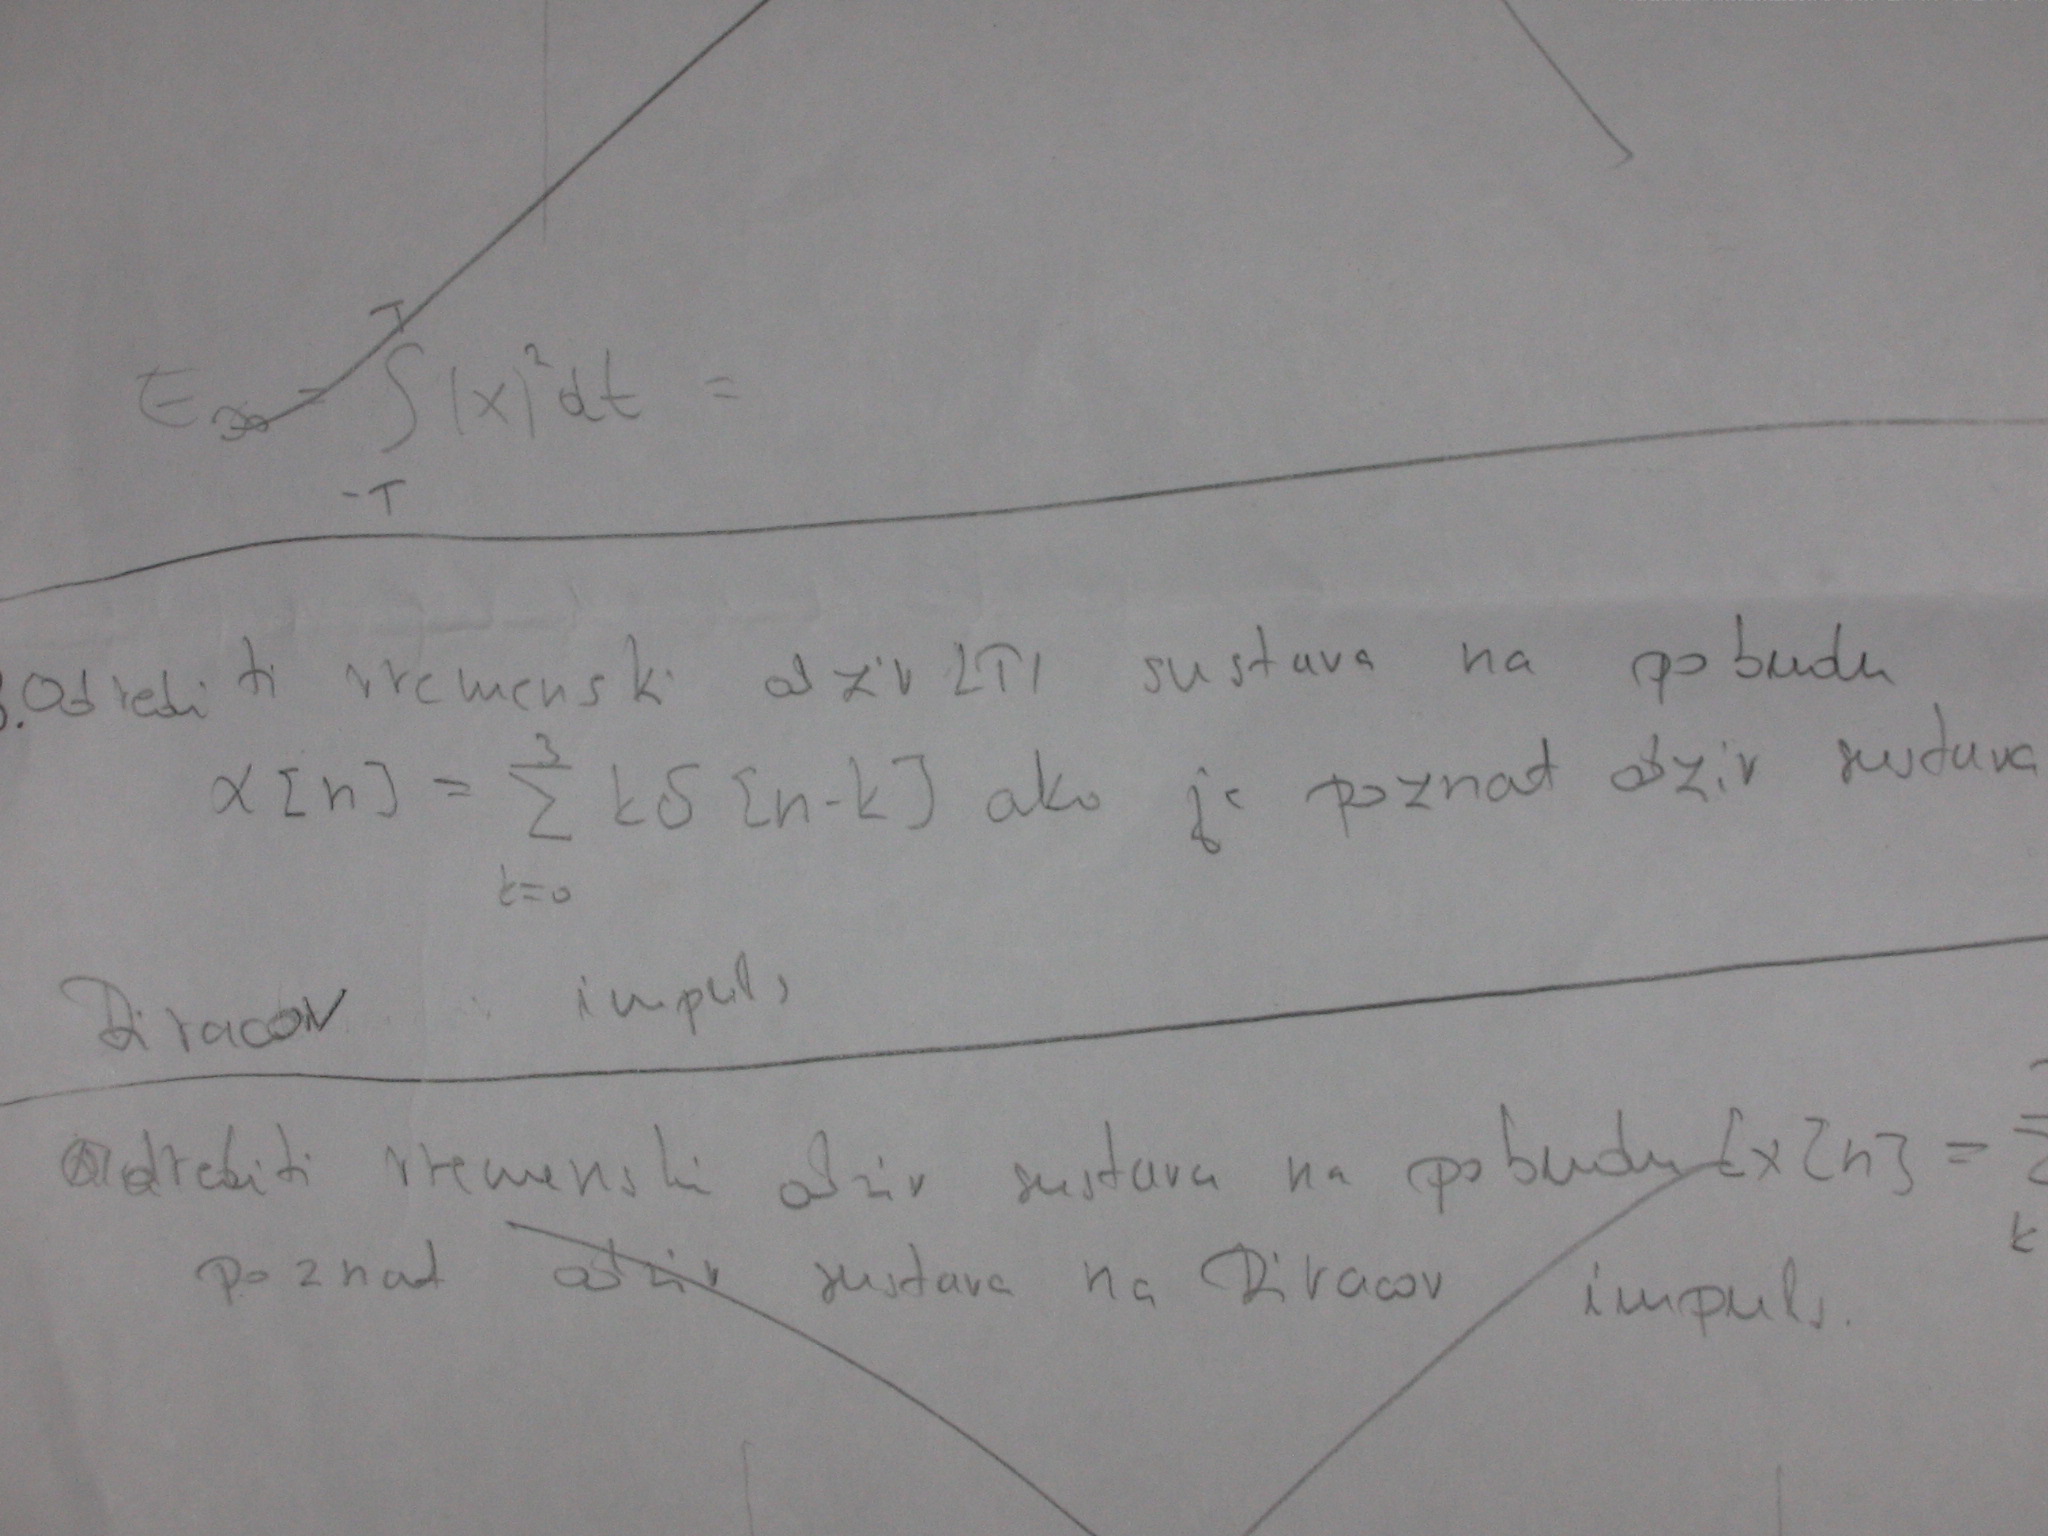 E∞ = ∫ |x|² dt =
T
-T
3. Odrediti vremenski odziv LTI sustava na pobudu
x[n] = ∑ kδ[n-k] ako je poznat odziv sustava
3
k=0
Diracov impuls
Odrediti vremenski odziv sustava na pobudu [x[n] = ∑
k
poznat odziv sustava na Diracov impuls.